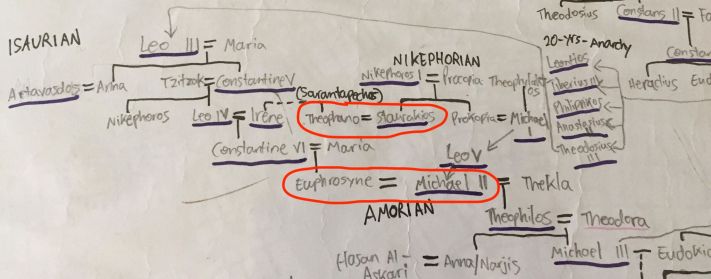 Theodosius Constans II =
ISAURIAN
Leo III = Maria
20-Yrs-Anarchy
NIKEPHORIAN
Leontios
Artavasdos = Anna
Tzitzak = Constantine V
Nikephoros I = Procopia
Tiberius III
Heraclius
(Sarantapechos)
Philippikos
Nikephoros
Leo IV = Irene
Theophano = Staurakios
Prokopia = Michael
Anastasius
Constantine VI = Maria
Leo V
Theodosius
III
Euphrosyne = Michael II = Thekla
AMORIAN
Theophilos = Theodora
Hasan Al-
Askari
= Anna/Narjis
Michael III